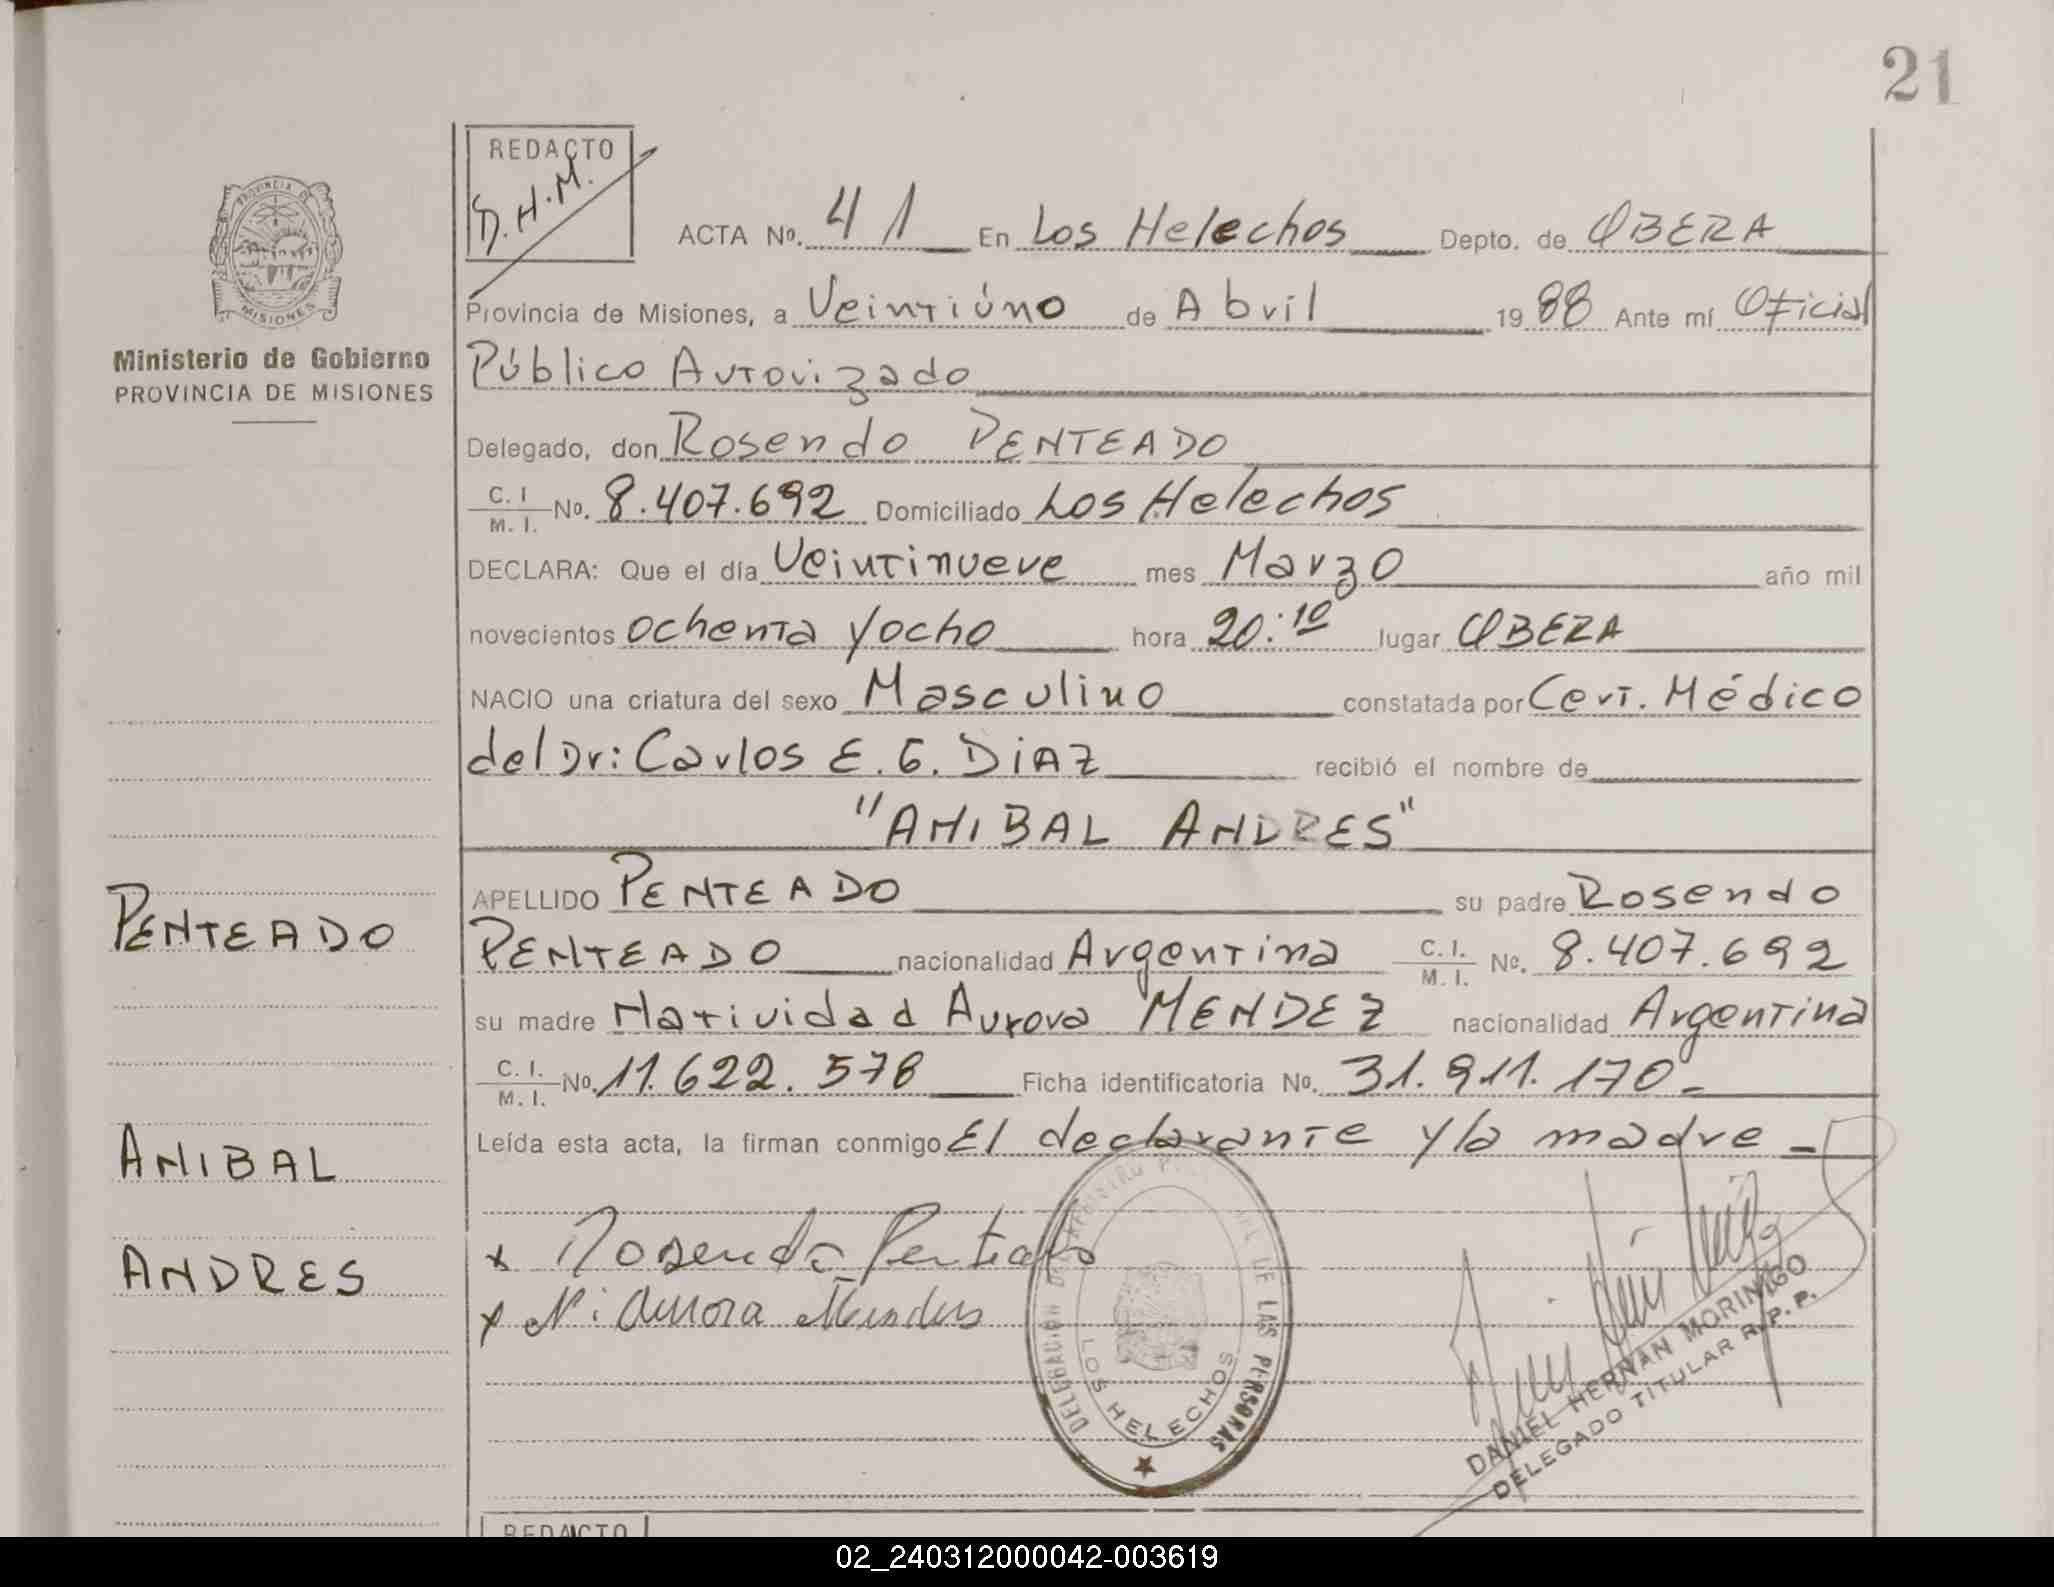 21
REDACTO
D.H.M.
PROVINCIA DE
MISIONES
Ministerio de Gobierno
PROVINCIA DE MISIONES
ACTA Nº. 41 En Los Helechos Depto. de OBERA
Provincia de Misiones, a Veintiúno de Abril 1988 Ante mí Oficial
Público Autorizado
Delegado, don Rosendo PENTEADO
C. I. / M. I. No. 8.407.692 Domiciliado Los Helechos
DECLARA: Que el día Veintinueve mes Marzo año mil
novecientos ochenta y ocho hora 20:10 lugar OBERA
NACIO una criatura del sexo Masculino constatada por Cert. Médico
del Dr: Carlos E. G. DIAZ recibió el nombre de
"ANIBAL ANDRES"
APELLIDO PENTEADO su padre Rosendo
PENTEADO nacionalidad Argentina C. I. / M. I. No. 8.407.692
su madre Natividad Aurora MENDEZ nacionalidad Argentina
C. I. / M. I. No. 11.622.578 Ficha identificatoria No. 31.911.170.-
Leída esta acta, la firman conmigo El declarante y la madre -
PENTEADO
ANIBAL
ANDRES
x Rosendo Penteado
x N. Aurora Mendes
DELEGACION DE LAS PERSONAS
LOS HELECHOS
DANIEL HERNAN MORINIGO
DELEGADO TITULAR R.P.P.
REDACTO
02_240312000042-003619